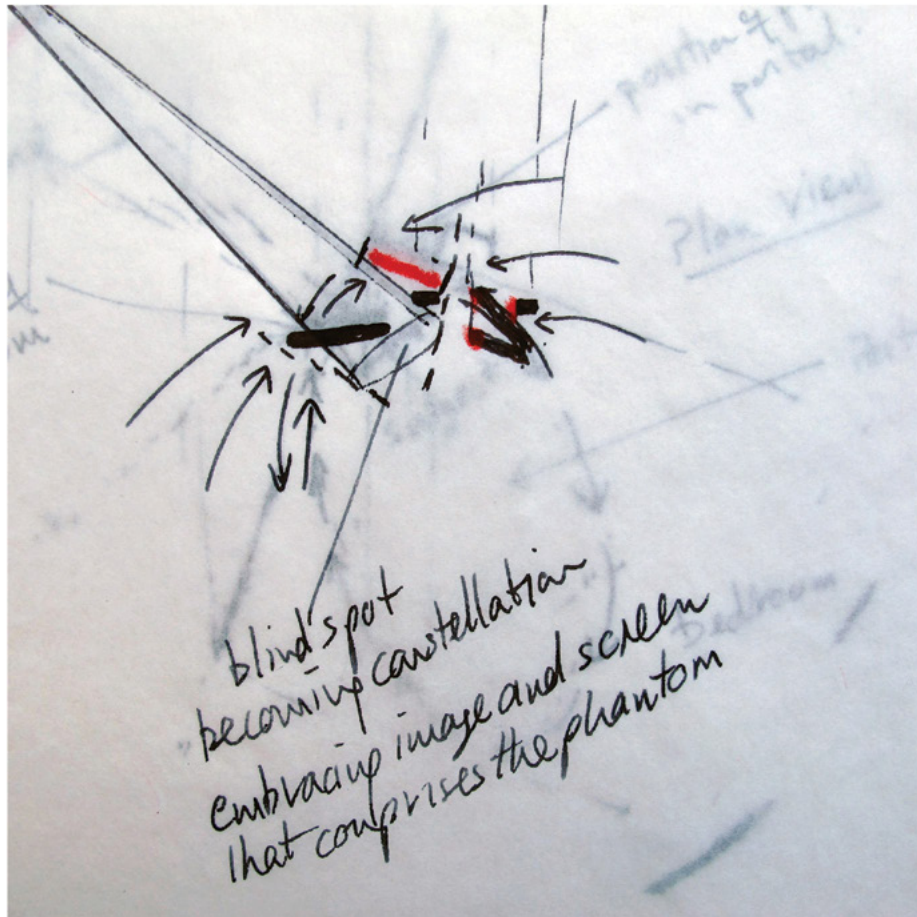 position of
in portal.
Plan View
bedroom
blind spot
becoming constellation
embracing image and screen
that comprises the phantom